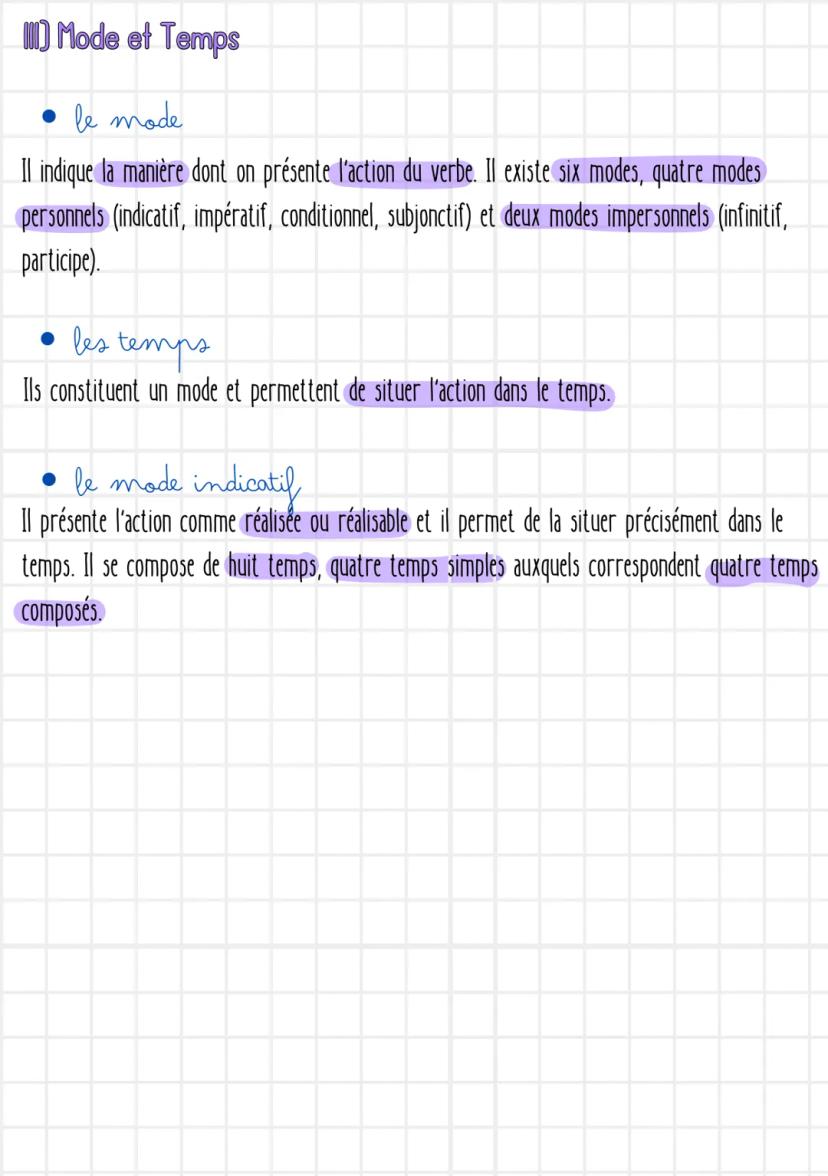 III) Mode et Temps
• le mode
Il indique la manière dont on présente l'action du verbe. Il existe six modes, quatre modes
personnels (indicatif, impératif, conditionnel, subjonctif) et deux modes impersonnels (infinitif,
participe).
• les temps
Ils constituent un mode et permettent de situer l'action dans le temps.
• le mode indicatif
Il présente l'action comme réalisée ou réalisable et il permet de la situer précisément dans le
temps. Il se compose de huit temps, quatre temps simples auxquels correspondent quatre temps
composés.